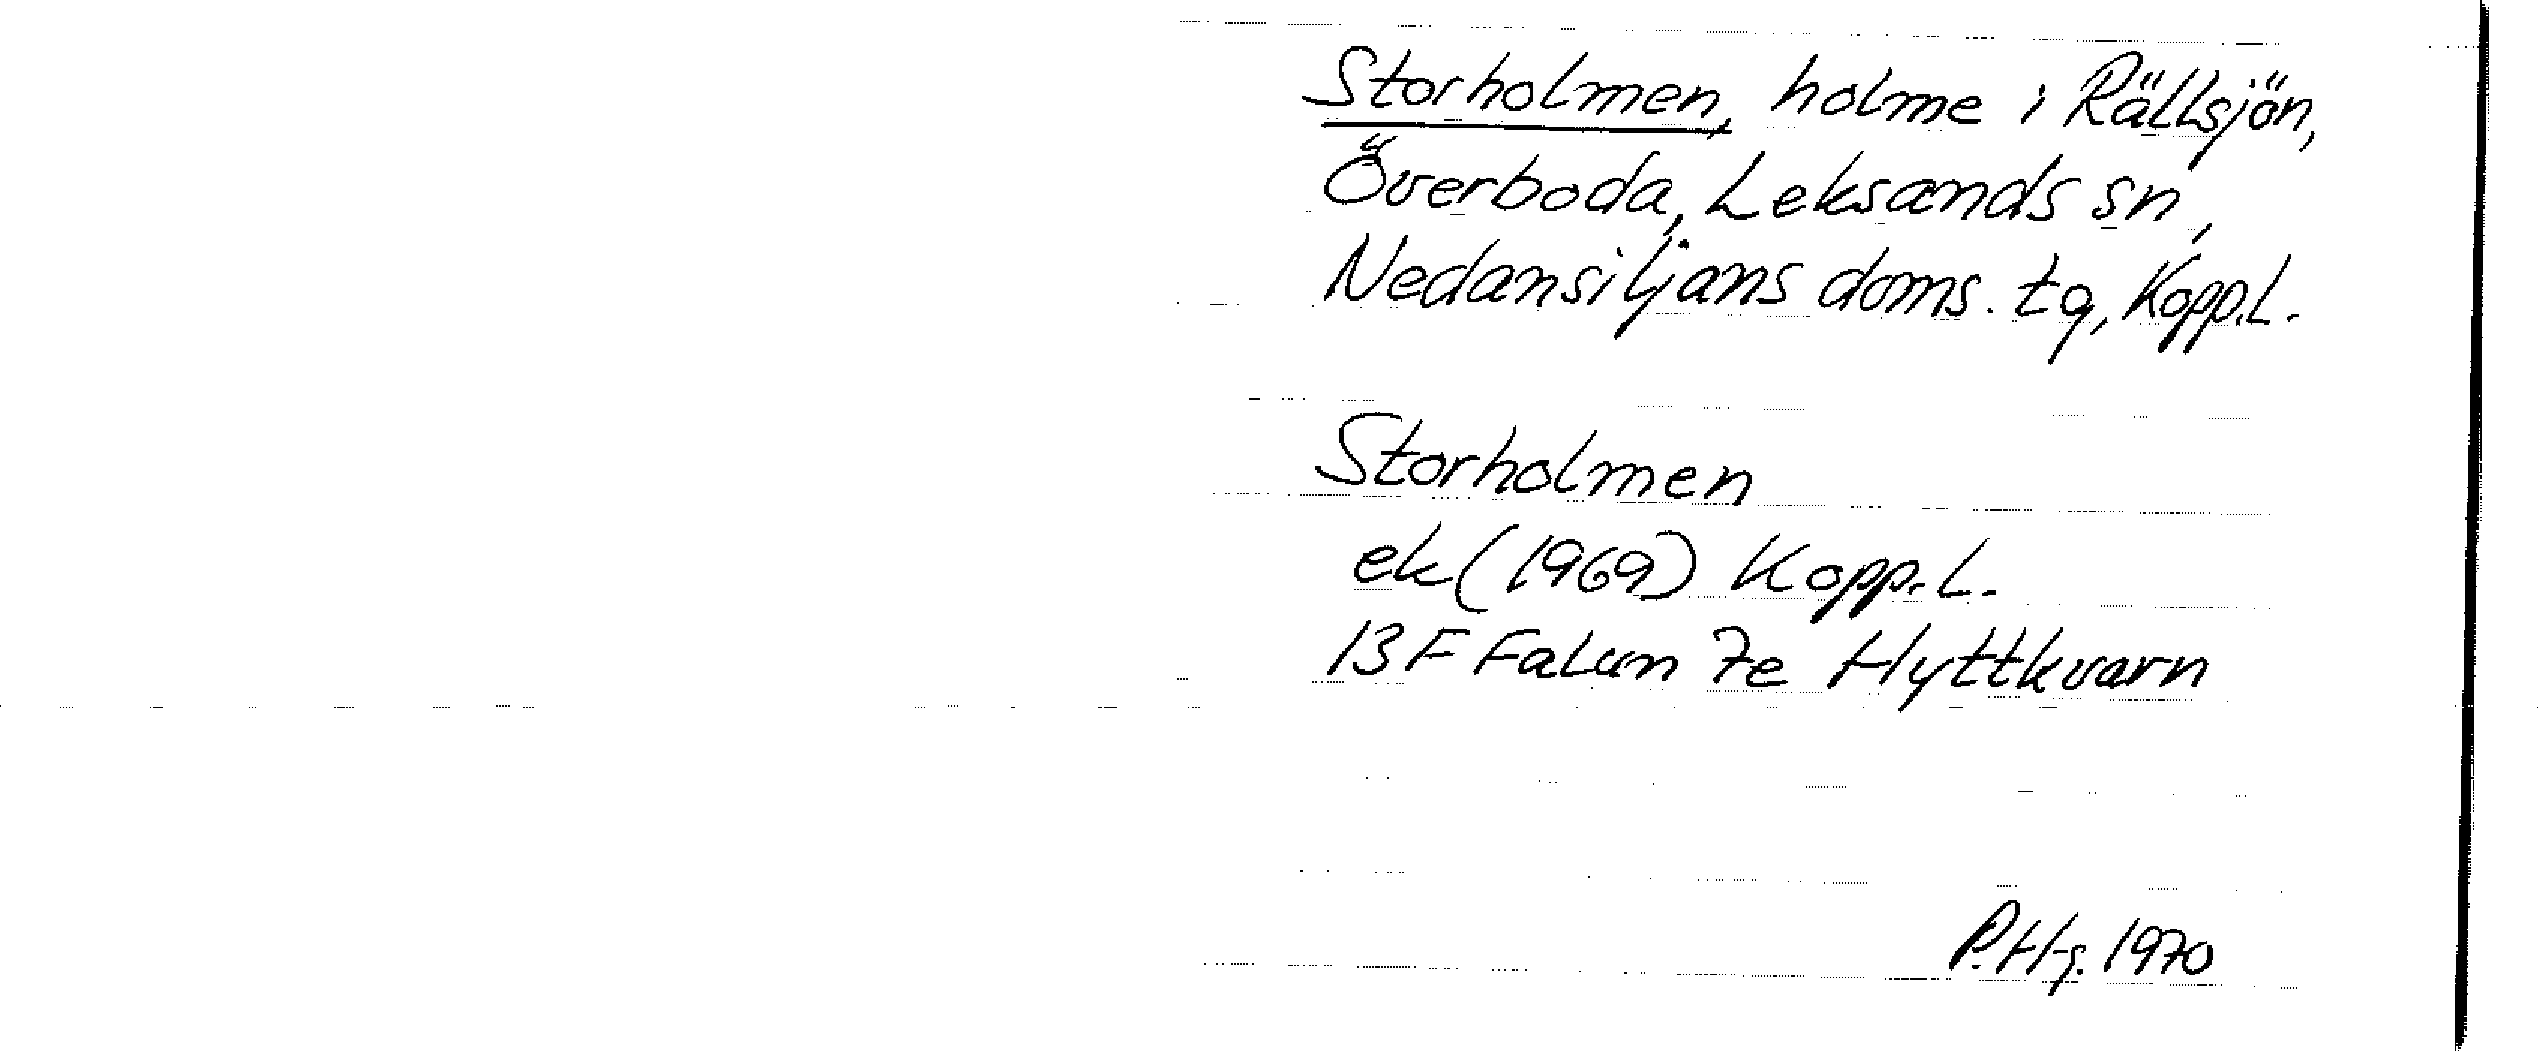 Storholmen, holme i Rällsjön,
Överboda, Leksands sn,
Nedansiljans doms. tg, Kopp.l.
Storholmen
ek (1969) Kopp.l.
13 F Falun 7e Hyttkvarn
P.Hg. 1970